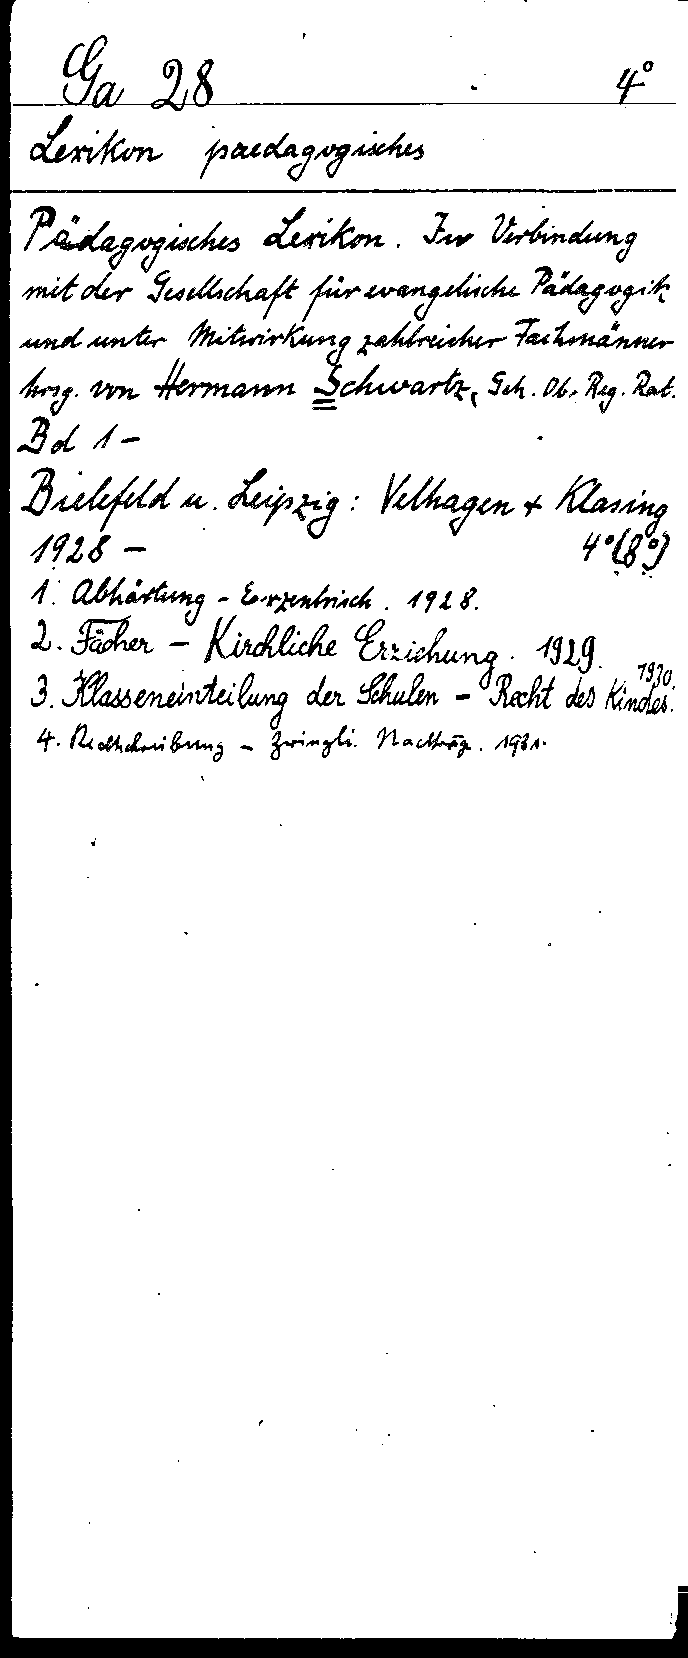 Ga 28 4°
Lexikon paedagogisches
Pädagogisches Lexikon. In Verbindung
mit der Gesellschaft für evangelische Pädagogik
und unter Mitwirkung zahlreicher Fachmänner
hrsg. von Hermann Schwartz, Geh. Ob. Reg. Rat.
Bd 1 -
Bielefeld u. Leipzig: Velhagen + Klasing
1928 - 4° (8°)
1. Abhärtung - Exzentrisch. 1928.
2. Fächer - Kirchliche Erziehung. 1929.
3. Klasseneinteilung der Schulen - Recht des Kindes. 1930.
4. Rechtschreibung - Zwingli. Nachträg. 1931.